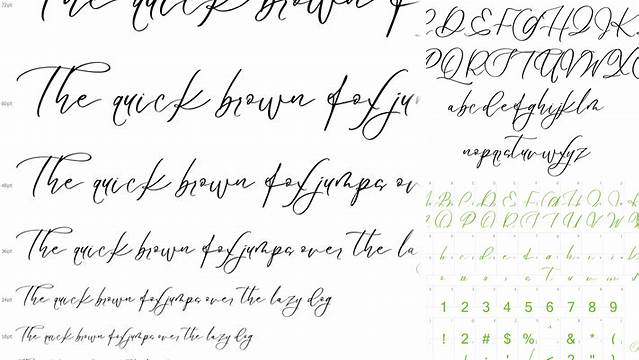 72pt
The quick brown f
60pt
The quick brown fox ju
48pt
The quick brown fox jumps ov
36pt
The quick brown fox jumps over the la
24pt
The quick brown fox jumps over the lazy dog
18pt
The quick brown fox jumps over the lazy dog
C D E F G H I J K
P Q R S T U V W X
a b c d e f g h i j k l m
n o p q r s t u v w x y z
B C D E F G H I J
O P Q R S T U V W
1 2 3 4 5 6 7 8 9
! 2 # $ %
& * (